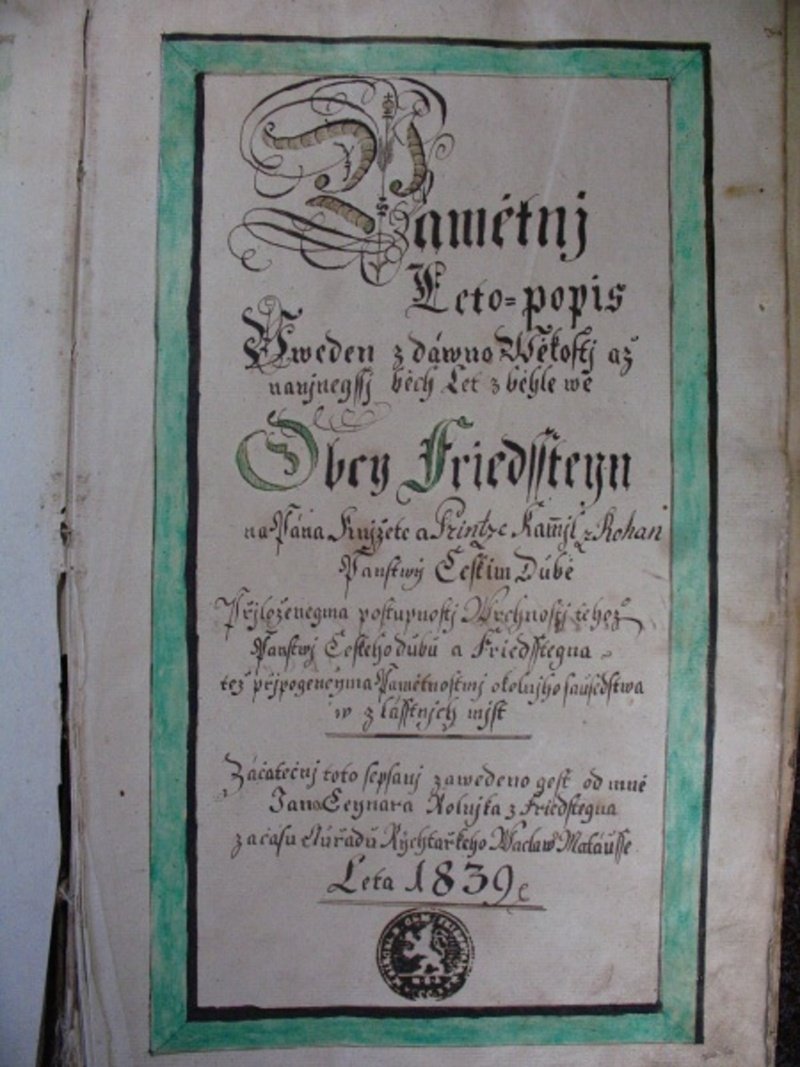 Pamětnj
Leto=popis
Uweden z dáwno Wěkostj až
nanjnegssj běch Let z běhle we
Obcy Friedssteyn
na Pána Knjžete a Printze Kamjl z Rohan
Panstwj Českim Dubě
Přjloženegma postupnostj Wrchnostj tehož
Panstwj Českeho dubů a Friedsstegna
tež přjpogenegma Pamětnostmj okolnjho sausedstwa
w z lásstnjch mjst
Záčatečnj toto sepsanj zawedeno gest od mně
Jana Ceynara Rolnjka z Friedstegna
začasu auřadů Rychtařkeho Wacława Matausse
Leta 1839